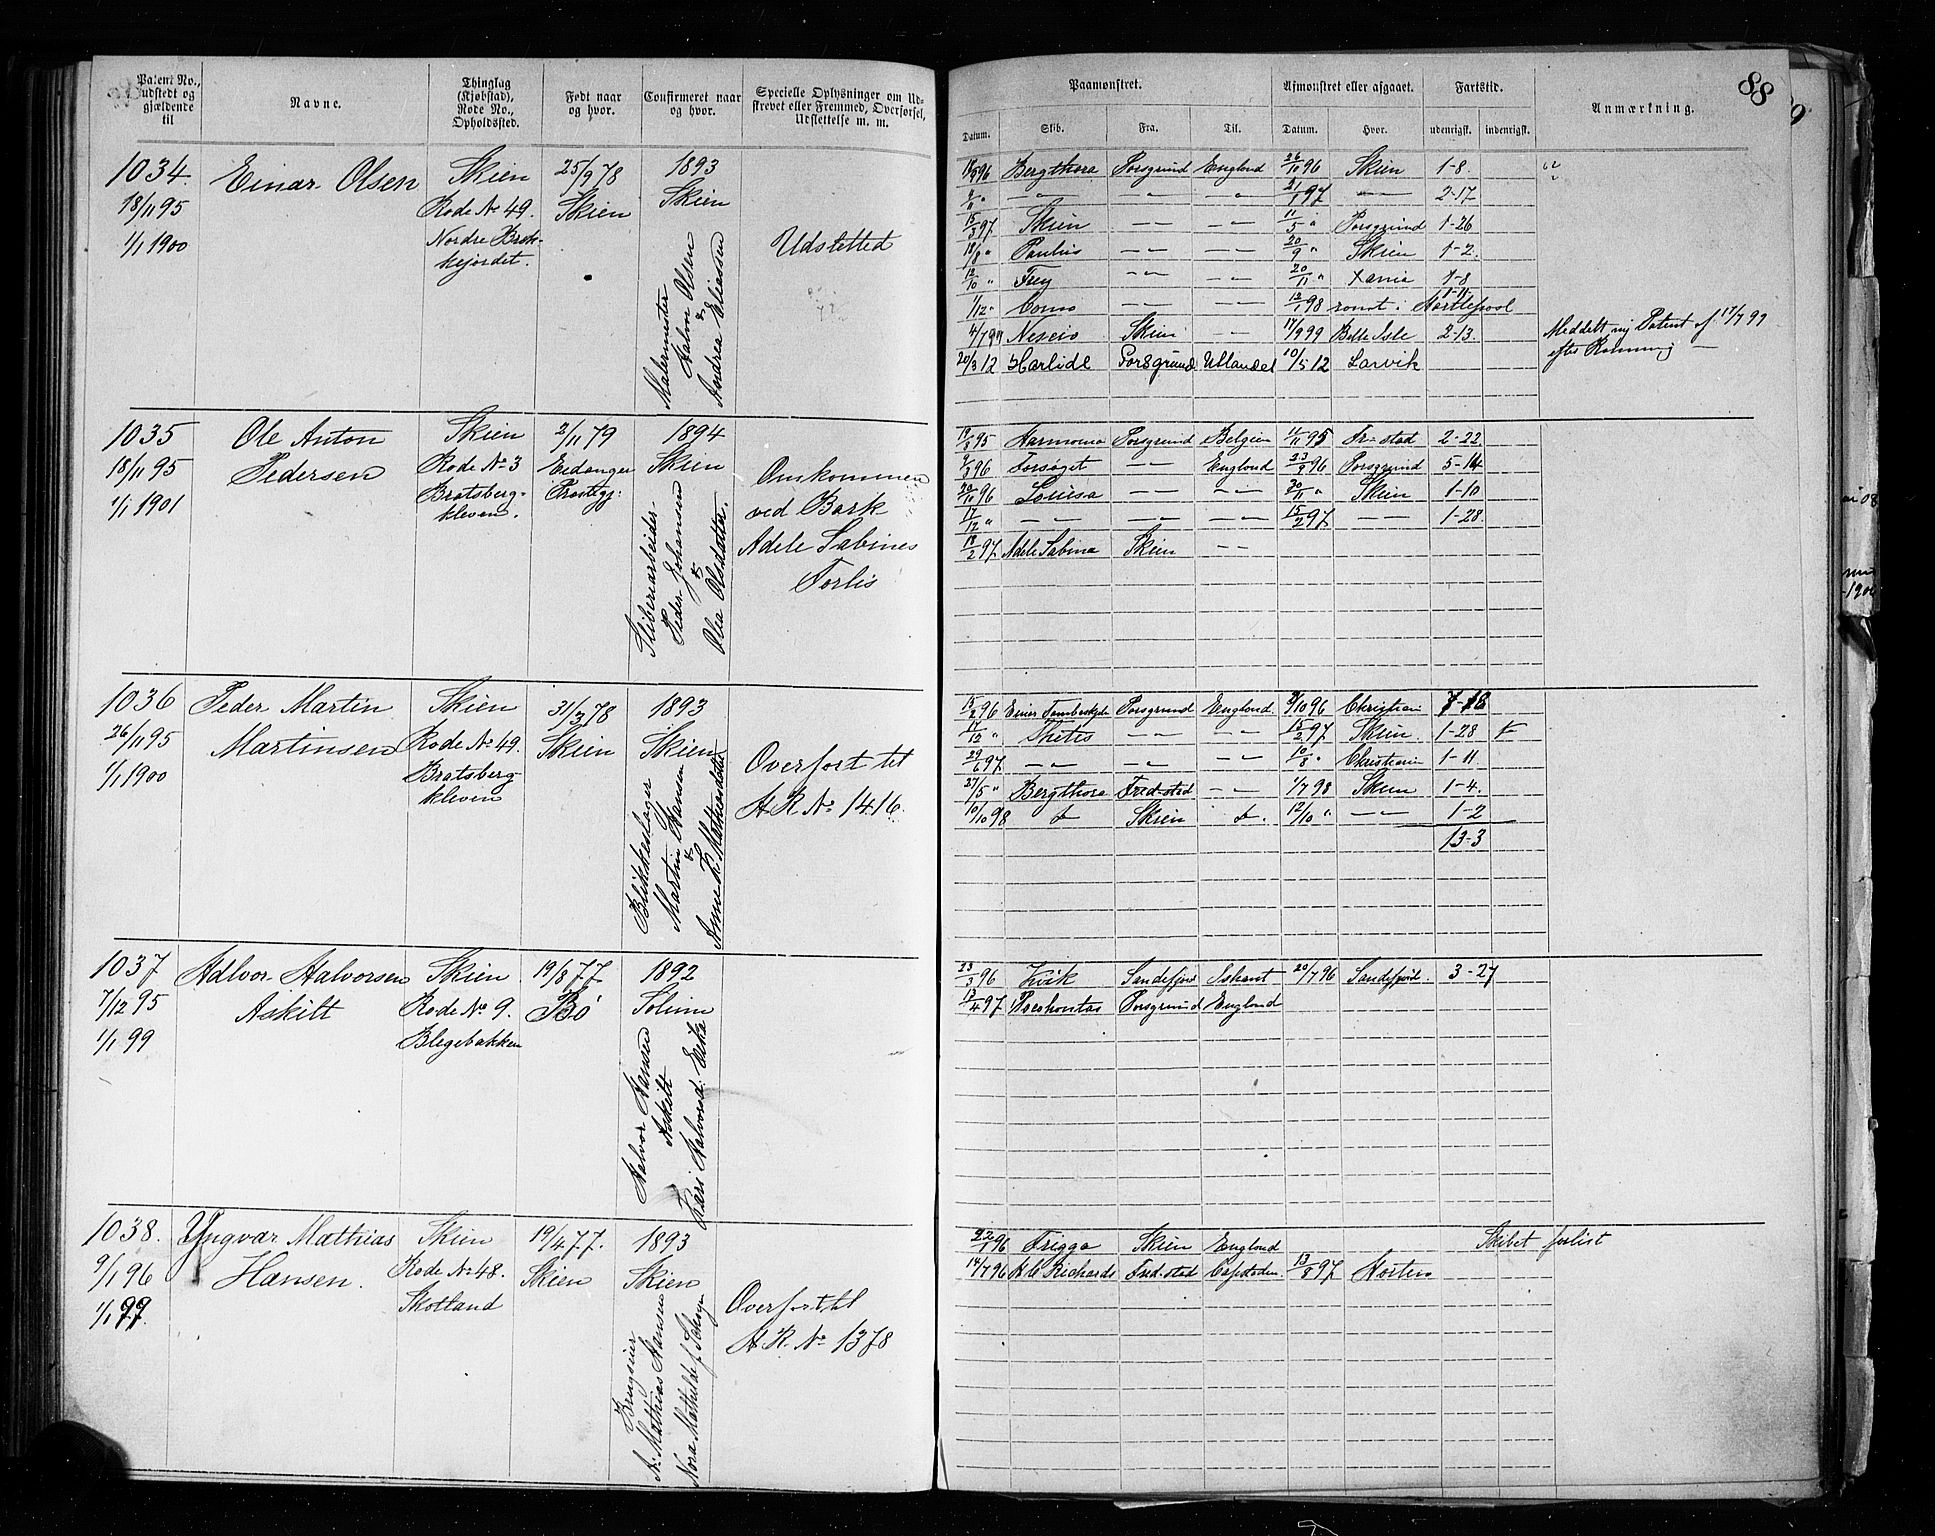 88
Patent No., udstedt og gjældende til
Navne.
Thinglag (Kjøbstad), Rode No., Opholdssted.
Født naar og hvor.
Confirmeret naar og hvor.
Specielle Oplysninger om Udskrevet eller Fremmed, Overførsel, Udslettelse m. m.
Paamønstret.
Afmønstret eller afgaaet.
Fartstid.
Anmærkning.
Datum. Skib. Fra. Til. Datum. Hvor. udenrigsk. indenrigsk.
1034. Einar Olsen Skien 25/9 78 1893
18/11 95 Rode No 49. Skien Skien
1/1 1900 Nordre Brek-
kejordet.
Udslettet
Malermester
Halvor Olsen
&
Andrea Eliassen
96 Bergthora Porsgrund England 26/10 96 Skien 1-8
" — — — 21/1 97 — 2-17
15/3 97 Skien — — 11/5 " Porsgrund 1-26
18/8 " Paulus — — 20/9 " Skien 1-2
12/10 " Frey — — 20/11 " Xania 1-8
1/12 " Como — — 12/1 98 rømt i Hartlepool 1-11
4/7 99 Nereid Skien — 17/9 99 Belle Isle 2-13.
20/3 12 Harlidl Porsgrund Utlandet 10/5 12 Larvik
Meddelt ny Patent af 17/7 99
efter Rømning
1035 Ole Anton Skien 2/11 79 1894
18/11 95 Pedersen Rode No 3 Eidanger Skien
1/1 1901 Bratsberg- Præstegj:
kleven.
Omkommen
ved Bark
Adele Sabines
Forlis
Sliberiarbeider
Peder Johansen
&
Olea Olsdatter
95 Harmonia Porsgrund Belgien 11/11 95 Fr-stad 2-22
9/3 96 Forsøget — England 23/9 96 Porsgrund 5-14
20/10 96 Louisa — — 30/11 " Skien 1-10
17/12 " — — — 15/2 97 — 1-28
18/2 97 Adele Sabina Skien —
1036 Peder Martin Skien 31/3 78 1893
26/11 95 Martinsen Rode No 49. Skien Skien
1/1 1900 Bratsberg-
kleven
Overført til
H.R. No 1416
Blikkeslager
Martin Hansen
&
15/2 96 Porsgrund England 3/10 96 Christiania 7-18
17/12 " Thetis — — 15/2 97 Skien 1-28
29/6 97 — — — 10/8 " Christiania 1-11
27/5 " Bergthora Fred-stad — 1/7 98 Skien 1-4
10/10 98 Skien 12/10 " — 1-2
13-3
1037 Halvor Halvorsen Skien 19/8 77. 1892
7/12 95 Askilt Rode No 9. Bø Solum
1/1 99 Blegebakken
Halvor Hansen
Askilt
Kari Halvorsd. Eika
23/3 96 Kvik Sandefjord Ishavet 20/7 96 Sandefjord. 3-27
13/4 97 Pocahontas Porsgrund England
1038. Yngvar Mathias Skien 19/4 77. 1893
9/1 96 Hansen. Rode No 48. Skien Skien
1/1 99. Skotland
Overført til
H.R. No 1378
Brugseier
N: Mathias Hansen
Nora Mathilde f
22/1 96 Frigga Skien England Skibet forlist
14/7 96 H C Richards Fred-stad Capstaden 13/8 97 Horten